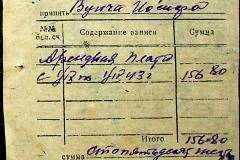 принять Вунча Иосифа
№№ Содержание записи Сумма
Арендная плата
с 1/I по 1/I 43 г 156-80
Итого 156-80
сумма Сто пятьдесят шесть